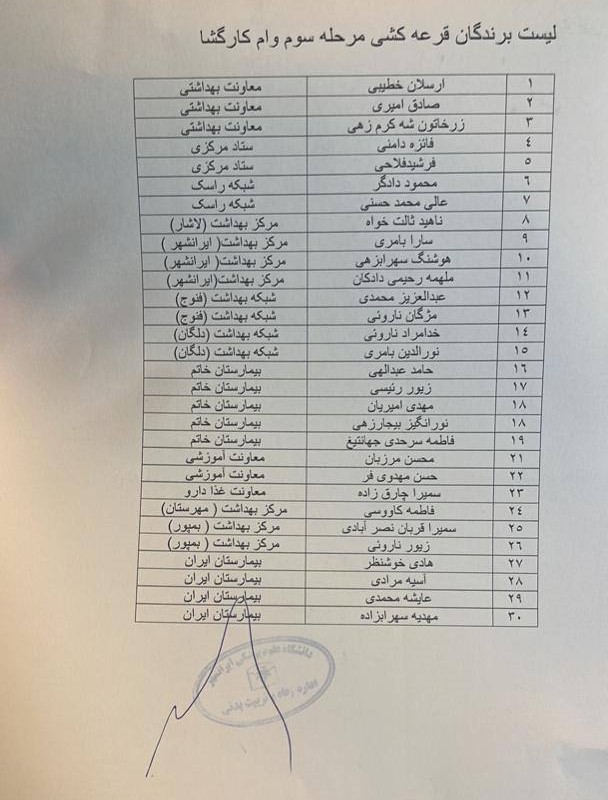 لیست برندگان قرعه کشی مرحله سوم وام کارگشا
۱ ارسلان خطیبی معاونت بهداشتی
۲ صادق امیری معاونت بهداشتی
۳ زرخاتون شه کرم زهی معاونت بهداشتی
٤ فائزه دامنی ستاد مرکزی
٥ فرشیدفلاحی ستاد مرکزی
٦ محمود دادگر شبکه راسک
۷ عالی محمد حسنی شبکه راسک
۸ ناهید ثالث خواه مرکز بهداشت (لاشار)
۹ سارا بامری مرکز بهداشت( ایرانشهر )
۱۰ هوشنگ سهرابزهی مرکز بهداشت( ایرانشهر)
۱۱ ملهمه رحیمی دادکان مرکز بهداشت(ایرانشهر)
۱۲ عبدالعزیز محمدی شبکه بهداشت (فنوج)
۱۳ مژگان ناروئی شبکه بهداشت (فنوج)
۱٤ خدامراد ناروئی شبکه بهداشت (دلگان)
۱٥ نورالدین بامری شبکه بهداشت (دلگان)
۱٦ حامد عبدالهی بیمارستان خاتم
۱۷ زیور رئیسی بیمارستان خاتم
۱۸ مهدی امیریان بیمارستان خاتم
۱۸ نورانگیز بیجارزهی بیمارستان خاتم
۱۹ فاطمه سرحدی جهانتیغ بیمارستان خاتم
۲۱ محسن مرزبان معاونت آموزشی
۲۲ حسن مهدوی فر معاونت آموزشی
۲۳ سمیرا چارق زاده معاونت غذا دارو
۲٤ فاطمه کاووسی مرکز بهداشت ( مهرستان)
۲٥ سمیرا قربان نصر آبادی مرکز بهداشت ( بمپور)
۲٦ زیور ناروئی مرکز بهداشت ( بمپور)
۲۷ هادی خوشنظر بیمارستان ایران
۲۸ آسیه مرادی بیمارستان ایران
۲۹ عایشه محمدی بیمارستان ایران
۳۰ مهدیه سهرابزاده بیمارستان ایران
دانشگاه علوم پزشکی ایرانشهر
اداره رفاه و تربیت بدنی